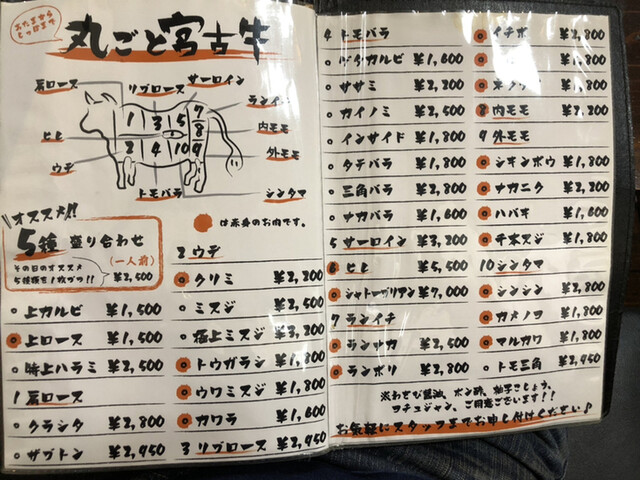 あたまから
しっぽまで
丸ごと宮古牛
肩ロース
リブロース
サーロイン
ランイチ
内モモ
外モモ
ヒレ
ウデ
トモバラ
シンタマ
1 3 5 7
8
2 4 10 9
オススメ!!
5種盛り合わせ
(一人前)
その日のオススメ
5種類を1枚づつ!! ¥2,500
は赤身のお肉です。
上カルビ ¥1,500
上ロース ¥1,500
特上ハラミ ¥2,500
1 肩ロース
クラシタ ¥2,800
ザブトン ¥2,950
2 ウデ
クリミ ¥2,200
ミスジ ¥2,500
極上ミスジ ¥3,200
トウガラシ ¥1,800
ウワミスジ ¥1,800
カワラ ¥1,600
3 リブロース ¥2,950
4 トモバラ
ゲタカルビ ¥1,600
ササミ ¥2,200
カイノミ ¥2,500
インサイド ¥1,800
タテバラ ¥1,800
三角バラ ¥2,800
ナカバラ ¥1,600
5 サーロイン ¥3,200
6 ヒレ ¥5,500
シャトーブリアン ¥7,000
7 ランイチ
ランサカ ¥2,500
ランボソ ¥2,800
イチボ ¥2,800
¥1,800
¥1,800
8 内モモ ¥2,200
9 外モモ
シキンボウ ¥1,800
ナカニク ¥2,200
ハバキ ¥1,600
千本スジ ¥1,800
10 シンタマ
シンシン ¥2,800
カメノコ ¥1,800
マルカワ ¥1,800
トモ三角 ¥2,950
※わさび醤油、ポン酢、柚子こしょう、
コチュジャン、ご用意ございます!!
お気軽にスタッフまでお申し付けください♪